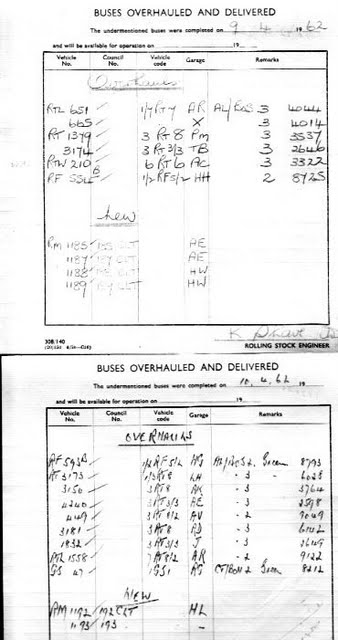 BUSES OVERHAULED AND DELIVERED
The undermentioned buses were completed on 9 4 1962
and will be available for operation on 19
Vehicle No. Council No. Vehicle code Garage Remarks
Overhauls
RTL 651 1/7 RT 7 AR AL/ 3 4044
665 X 3 4014
RT 1379 3 RT 8 PM 3 3537
3174 3 RT 3/3 TB 3 2646
RTW 210 6 RT 6 AC 3 3322
RF 554 B 1/2 RF 5/2 HH 2 8725
New
RM 1185 185 CLT AE
1187 187 CLT AE
1188 188 CLT HW
1189 189 CLT HW
308/140
ROLLING STOCK ENGINEER
BUSES OVERHAULED AND DELIVERED
The undermentioned buses were completed on 10.4.62 19
and will be available for operation on 19
Vehicle No. Council No. Vehicle code Garage Remarks
OVERHAULS
RF 593 1/2 RF 5/2 2 Green 8793
RT 3173 RT8 LH - 3 - 6025
3150 3 RT8 AK - 3 3764
4240 3 RT 3/3 AE - 3 2598
449 AV - 2 7049
3181 3 RT8 AD - 3
1832 3 RT 3/3 J - 3
RTL 1558 AR - 2 9122
GS 47 GS1 2 Green 8212
NEW
RM 1192 192 CLT HL
1193 193 -